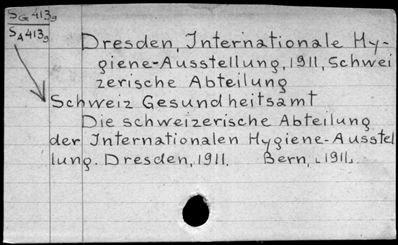 SG413g
SA413g
Dresden, Internationale Hy-
giene-Ausstellung, 1911, Schwei
zerische Abteilung
Schweiz Gesundheitsamt
Die schweizerische Abteilung
der Internationalen Hygiene-Ausstel
lung. Dresden, 1911. Bern, [1911].